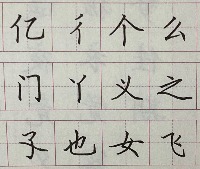 亿彳个么
门丫义之
子也女飞